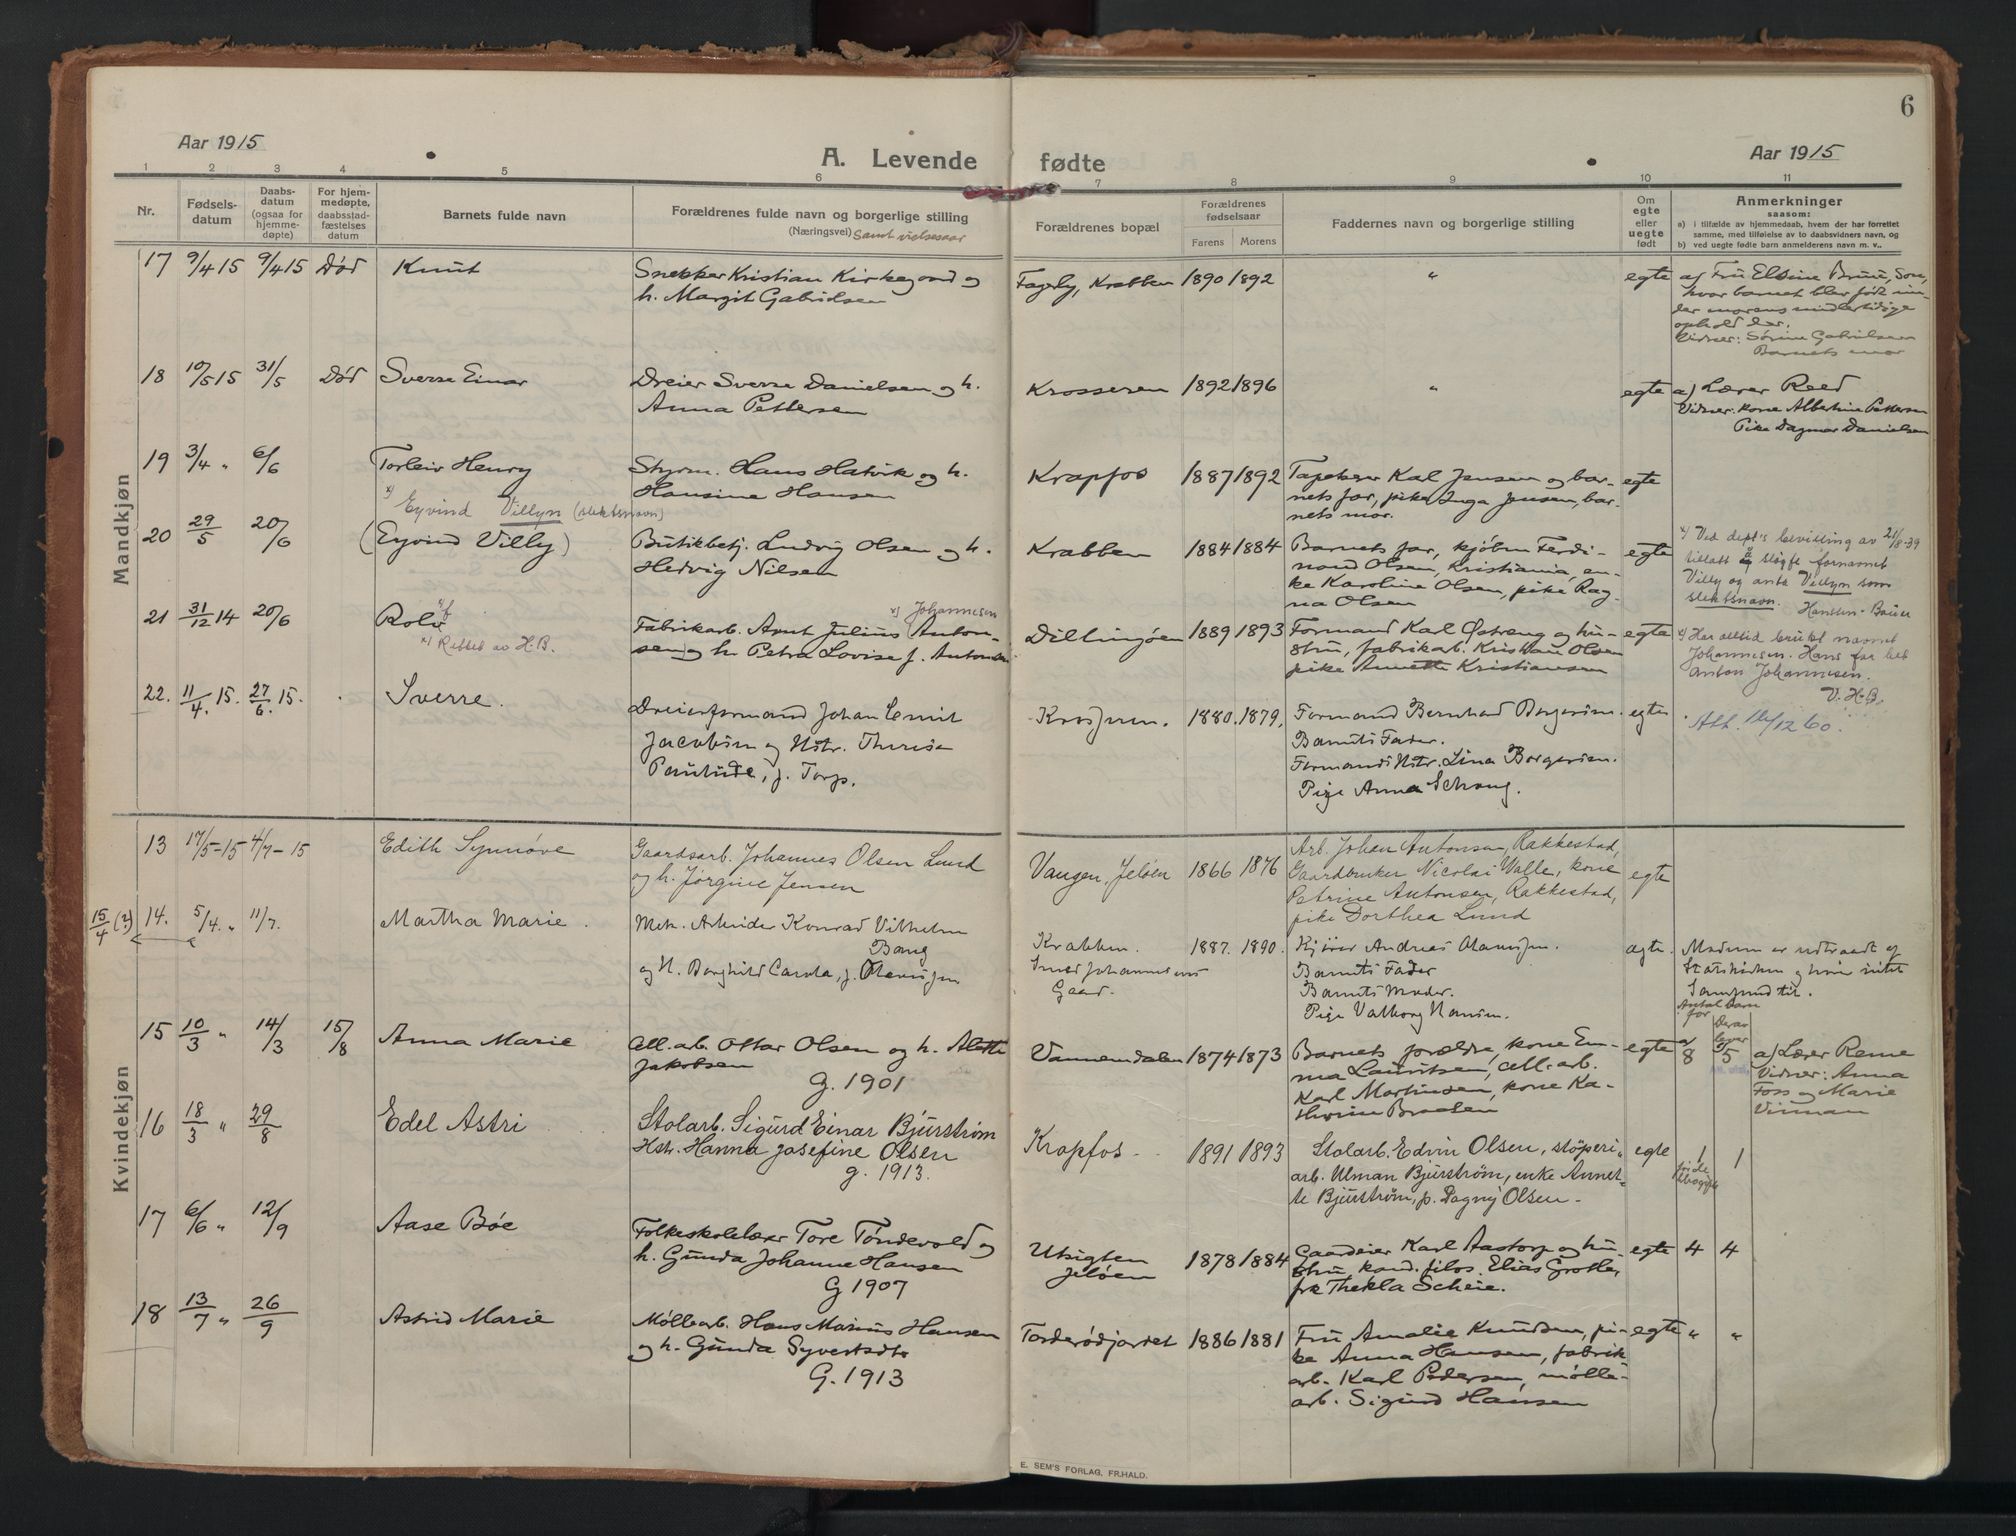 6
Aar 1915
A. Levende fødte
Aar 1915
1 2 3 4 5 6 7 8 9 10 11
Nr.
Fødselsdatum
Daabsdatum (ogsaa for hjemmedøpte)
For hjemmedøpte, daabsstadfæstelses datum
Barnets fulde navn
Forældrenes fulde navn og borgerlige stilling
(Næringsvei) Samt vielsesaar
Forældrenes bopæl
Forældrenes fødselsaar
Farens Morens
Faddernes navn og borgerlige stilling
Om egte eller uegte født
Anmerkninger
saasom:
a) i tilfælde av hjemmedaab, hvem der har forrettet
samme, med tilføielse av to daabsvidners navn, og
b) ved uegte fødte barn anmelderens navn m. v..
Mandkjøn
17 9/4 15 9/4 15 Død Knut
Snekker Kristian Kirkegaard og
h. Margit Gabrielsen
Fagerly, Krabben 1890 1892 " egte
a) Fru Elsine Bruu, Son,
hvor barnet blev født un-
der morens midlertidige
ophold der.
Vidner: Sørine Gabrielsen
Barnets mor
18 10/5 15 31/5 Død Sverre Einar
Dreier Sverre Danielsen og h.
Anna Pettersen
Krosseren 1892 1896 " egte
a) Lærer Reed
Vidner: kone Albertine Pettersen
Pike Dagmar Danielsen
19 3/4 " 6/6 Torleiv Henry
Styrm. Hans Hatvik og h.
Hansine Hansen
Krapfos 1887 1892
Tapetserer Karl Jensen og bar-
nets far, pike Inga Jensen, bar-
nets mor.
egte
x) Eyvind Villyn (slektsnavn)
20 29/5 20/6 (Eyvind Villy)
Butikbetj. Ludvig Olsen og h.
Hedvig Nilsen
Krabben 1884 1884
Barnets far, kjøbm. Ferdi-
nand Olsen, Kristiania, en-
ke Karoline Olsen, pike Rag-
na Olsen
egte
x) Ved dept's bevilling av 21/8-39
tillatt å sløife fornavnet
Villy og anta Villyn som
slektsnavn. Hanssen-Bauer
21 31/12 14 20/6 Rolv
x) Rettet av H.B.
x) Johannesen
Fabrikarb. Arnt Julius Anton-
sen og h. Petra Lovise f. Antonsen
Dillingøen 1889 1893
Formand Karl Østreng og hu-
stru, fabrikarb. Kristian Olsen
pike Annette Kristiansen
egte
x) Har alltid brukt navnet
Johannesen. Hans far het
Anton Johannesen.
V. H-B.
22. 11/4. 15. 27/6. 15. Sverre.
Dreierformand Johan Emil
Jacobsen og Hstr. Therese
Pauline, f. Torp.
Krosseren. 1880. 1879.
Formand Bernhard Borgersen.
Barnets Fader.
Formands Hstr. Lina Borgersen.
Pige Anna Schong.
egte
Att. 16/12 60.
Kvindekjøn
13 17/5-15 4/7-15 Edith Synnøve
Gaardsarb. Johannes Olsen Lund
og h. Jørgine Jensen
Vangen, Jeløen 1866 1876
Arb. Johan Antonsen, Rakkestad,
Gaardbruker Nicolai Walle, kone
Petrine Antonsen, Rakkestad,
pike Dorthea Lund
egte
15/4 (?) 14. 5/4. " 11/7. Martha Marie.
Mek. Arbeider Konrad Vilhelm
Bang
og H. Borghild Carola, f. Olavesen
Krabben.
Smed Johannesens
Gaard.
1887. 1890.
Kjører Andreas Olavesen.
Barnets Fader
Barnets Moder.
Pige Valborg Hansen.
egte.
Modern er udtraadt af
Statskirken og hører intet
Samfund til.
Antal barn før
Derav lever
15 10/3 " 14/3 15/8 Anna Marie
All. arb. Ottar Olsen og h. Alette
Jakobsen
G. 1901
Vannemdalen 1874 1873
Barnets forældre, kone Em-
ma Lauritsen, all. arb.
Karl Martinsen, kone Ka-
thrine Braaten
egte 8 5
a) Lærer Reme
Vidner: Anna
Foss og Marie
Virmam
16 18/3 " 29/8 Edel Astri
Stolarb. Sigurd Einar Bjurstrøm
Hstr. Hanna Josefine Olsen
g. 1913.
Krapfos 1891 1893
Stolarb. Edvin Olsen, støperi-
arb. Ulman Bjurstrøm, enke Annet-
te Bjurstrøm, p. Dagny Olsen.
egte 1 1
17 6/6 " 12/9 Aase Bøe
Folkeskolelærer Tore Tøndevold og
h. Gunda Johanne Hansen
G 1907
Utsigten
Jeløen
1878 1884
Gaardeier Karl Aastorp og hu-
stru kand. filos. Elias Grotle,
frk Thekla Scheie.
egte 4 4
18 13/7 " 26/9 Astrid Marie
Møllearb. Hans Marius Hansen
og h. Gunda Syvertsdtr
G. 1913
Torderødjordet 1886 1881
Fru Amalie Knudsen, pi-
ke Anna Hansen, fabrik
arb. Karl Pedersen, mølle-
arb. Sigurd Hansen
egte " "
E. SEM'S FORLAG, FR.HALD.